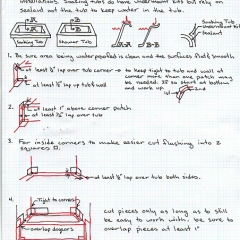 installations. Soaking tubs do have undermount kits but rely on
sealant not the tub to keep water in the tub.
Soaking Tub
Undermount kit
Sealant
Soaking Tub
Shower Tub
A-A
B-B
1. Be sure area being waterproofed is clean and the surfaces flat & smooth
at least ½" lap over tub corner → to keep tight to tub and wall at
corner more than one patch may
be needed. If so start at bottom
and work up.
at least ½" lap up tub & wall
2.
at least 1" above corner patch
at least ½" lap over tub
3. For inside corners to make easier cut flashing into 2
squares
at least ½" lap over tub both sides.
4.
Tight to corners
overlap
cut pieces only as long as to still
be easy to work with. be sure to
overlap pieces at least 1"